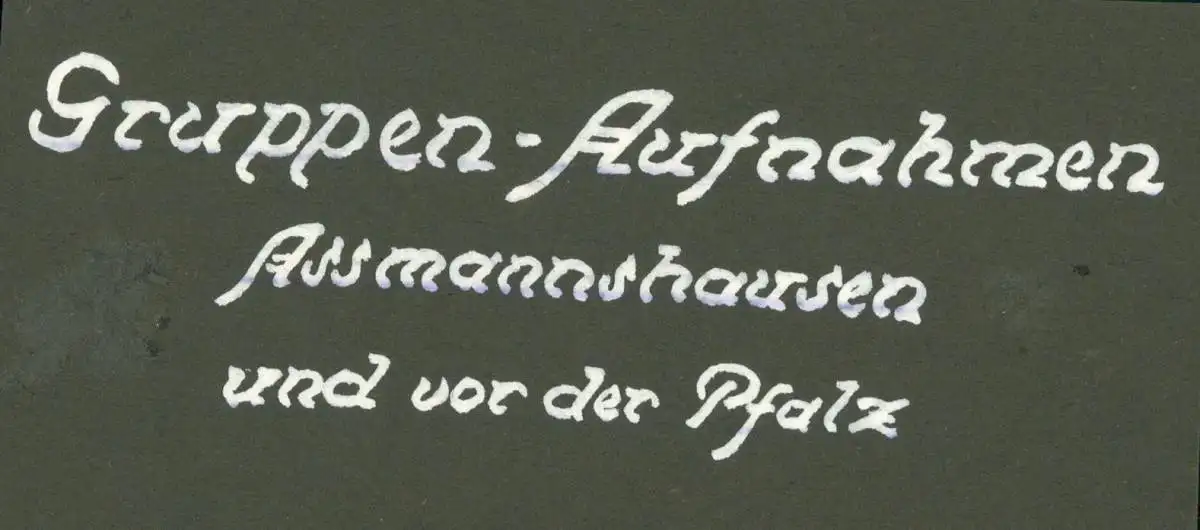 Gruppen-Aufnahmen
Assmannshausen
und vor der Pfalz